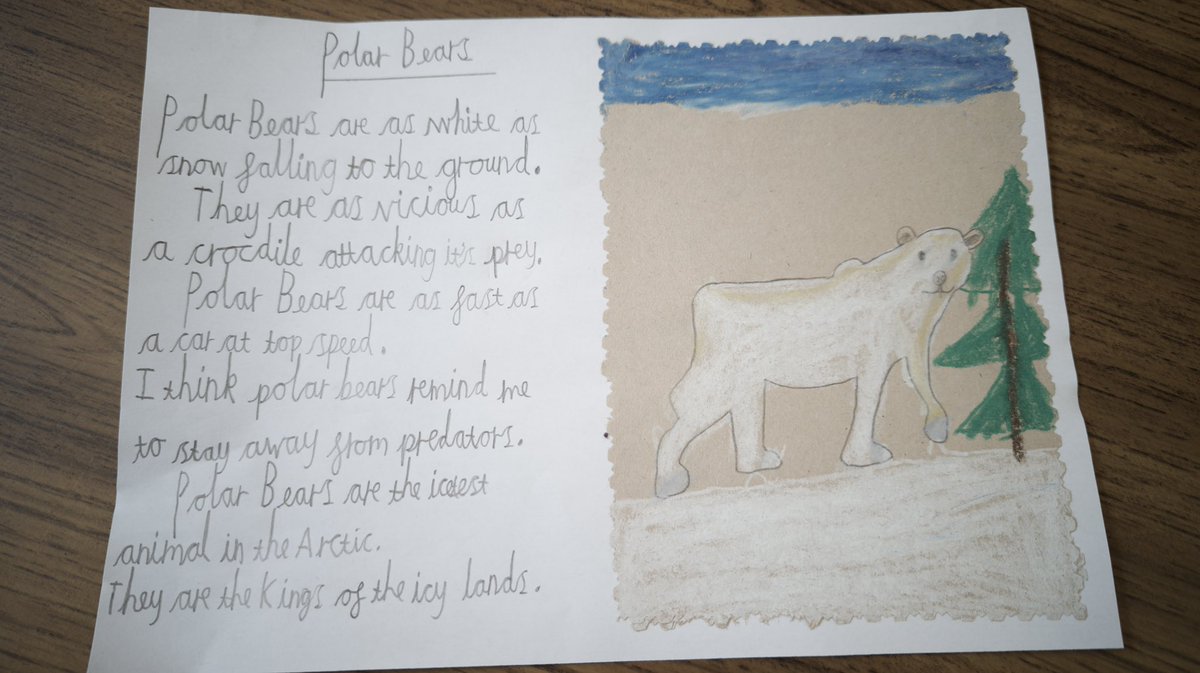 Polar Bears
Polar Bears are as white as
snow falling to the ground.
They are as vicious as
a crocdile attacking it's prey.
Polar Bears are as fast as
a car at top speed.
I think polar bears remind me
to stay away from predators.
Polar Bears are the
animal in the Arctic.
They are the Kings of the icy lands.